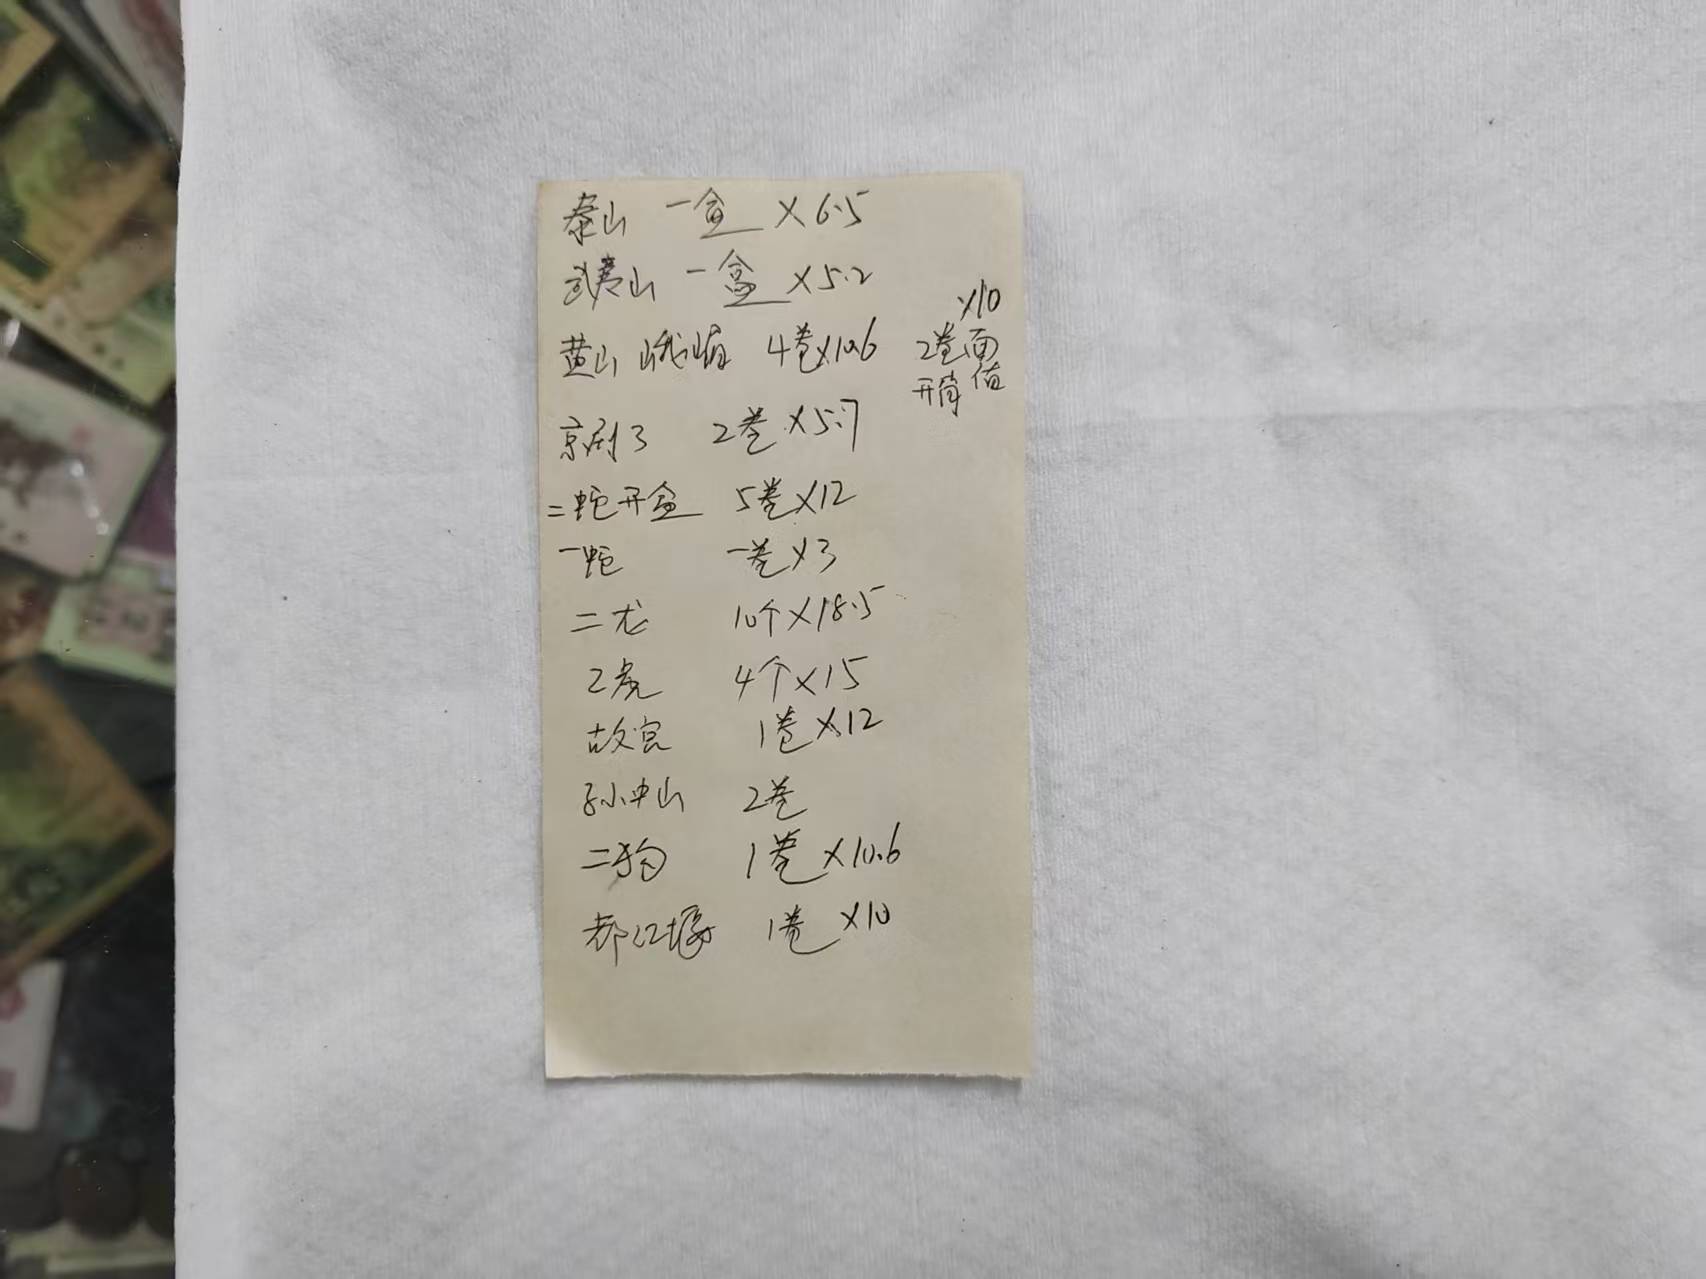 泰山 一盒 ×6.5
武夷山 一盒 ×5.2
黄山 峨嵋 4卷×10.6
×10
2卷面值
开肯
京剧3 2卷×5.7
二蛇开盒 5卷×12
一蛇 一卷×3
二龙 10个×18.5
2虎 4个×15
故宫 1卷×12
孙中山 2卷
二狗 1卷×10.6
都江堰 1卷×10